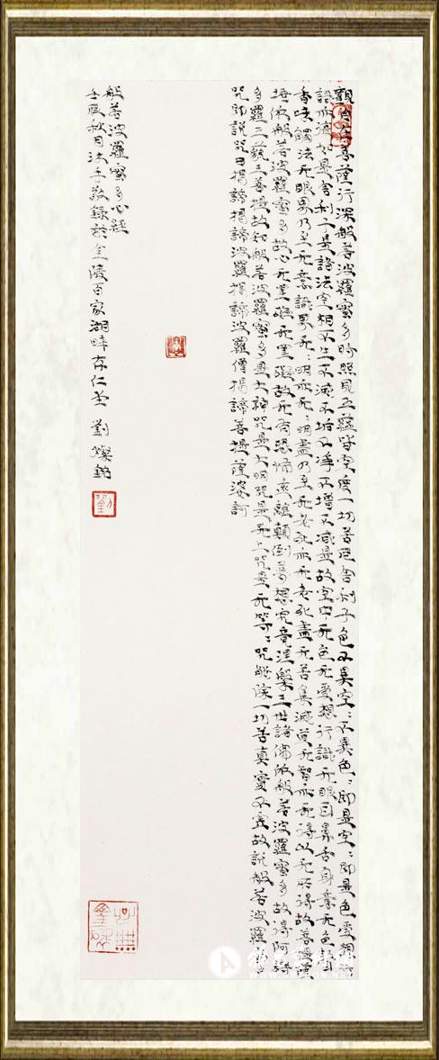 觀自在菩薩行深般若波羅蜜多時照見五蘊皆空度一切苦厄舍利子色不異空〻不異色〻即是空〻即是色受想行
識亦復如是舍利子是諸法空相不生不滅不垢不淨不增不減是故空中无色无受想行識无眼耳鼻舌身意无色聲
香味觸法无眼界乃至无意識界无〻明亦无〻明盡乃至无老死亦无老死盡无苦集滅道无智亦无得以无所得故菩提薩
埵依般若波羅蜜多故心无罣礙无罣礙故无有恐怖遠離顛倒夢想究竟涅槃三世諸佛依般若波羅蜜多故得阿耨
多羅三藐三菩提故知般若波羅蜜多是大神咒是大明咒是无上咒是无等〻咒能除一切苦真實不虛故說般若波羅蜜多
咒即說咒曰揭諦揭諦波羅揭諦波羅僧揭諦菩提薩婆訶
般若波羅蜜多心經
壬辰秋月沐手敬錄於金陵百家湖畔存仁堂 劉燦銘
劉